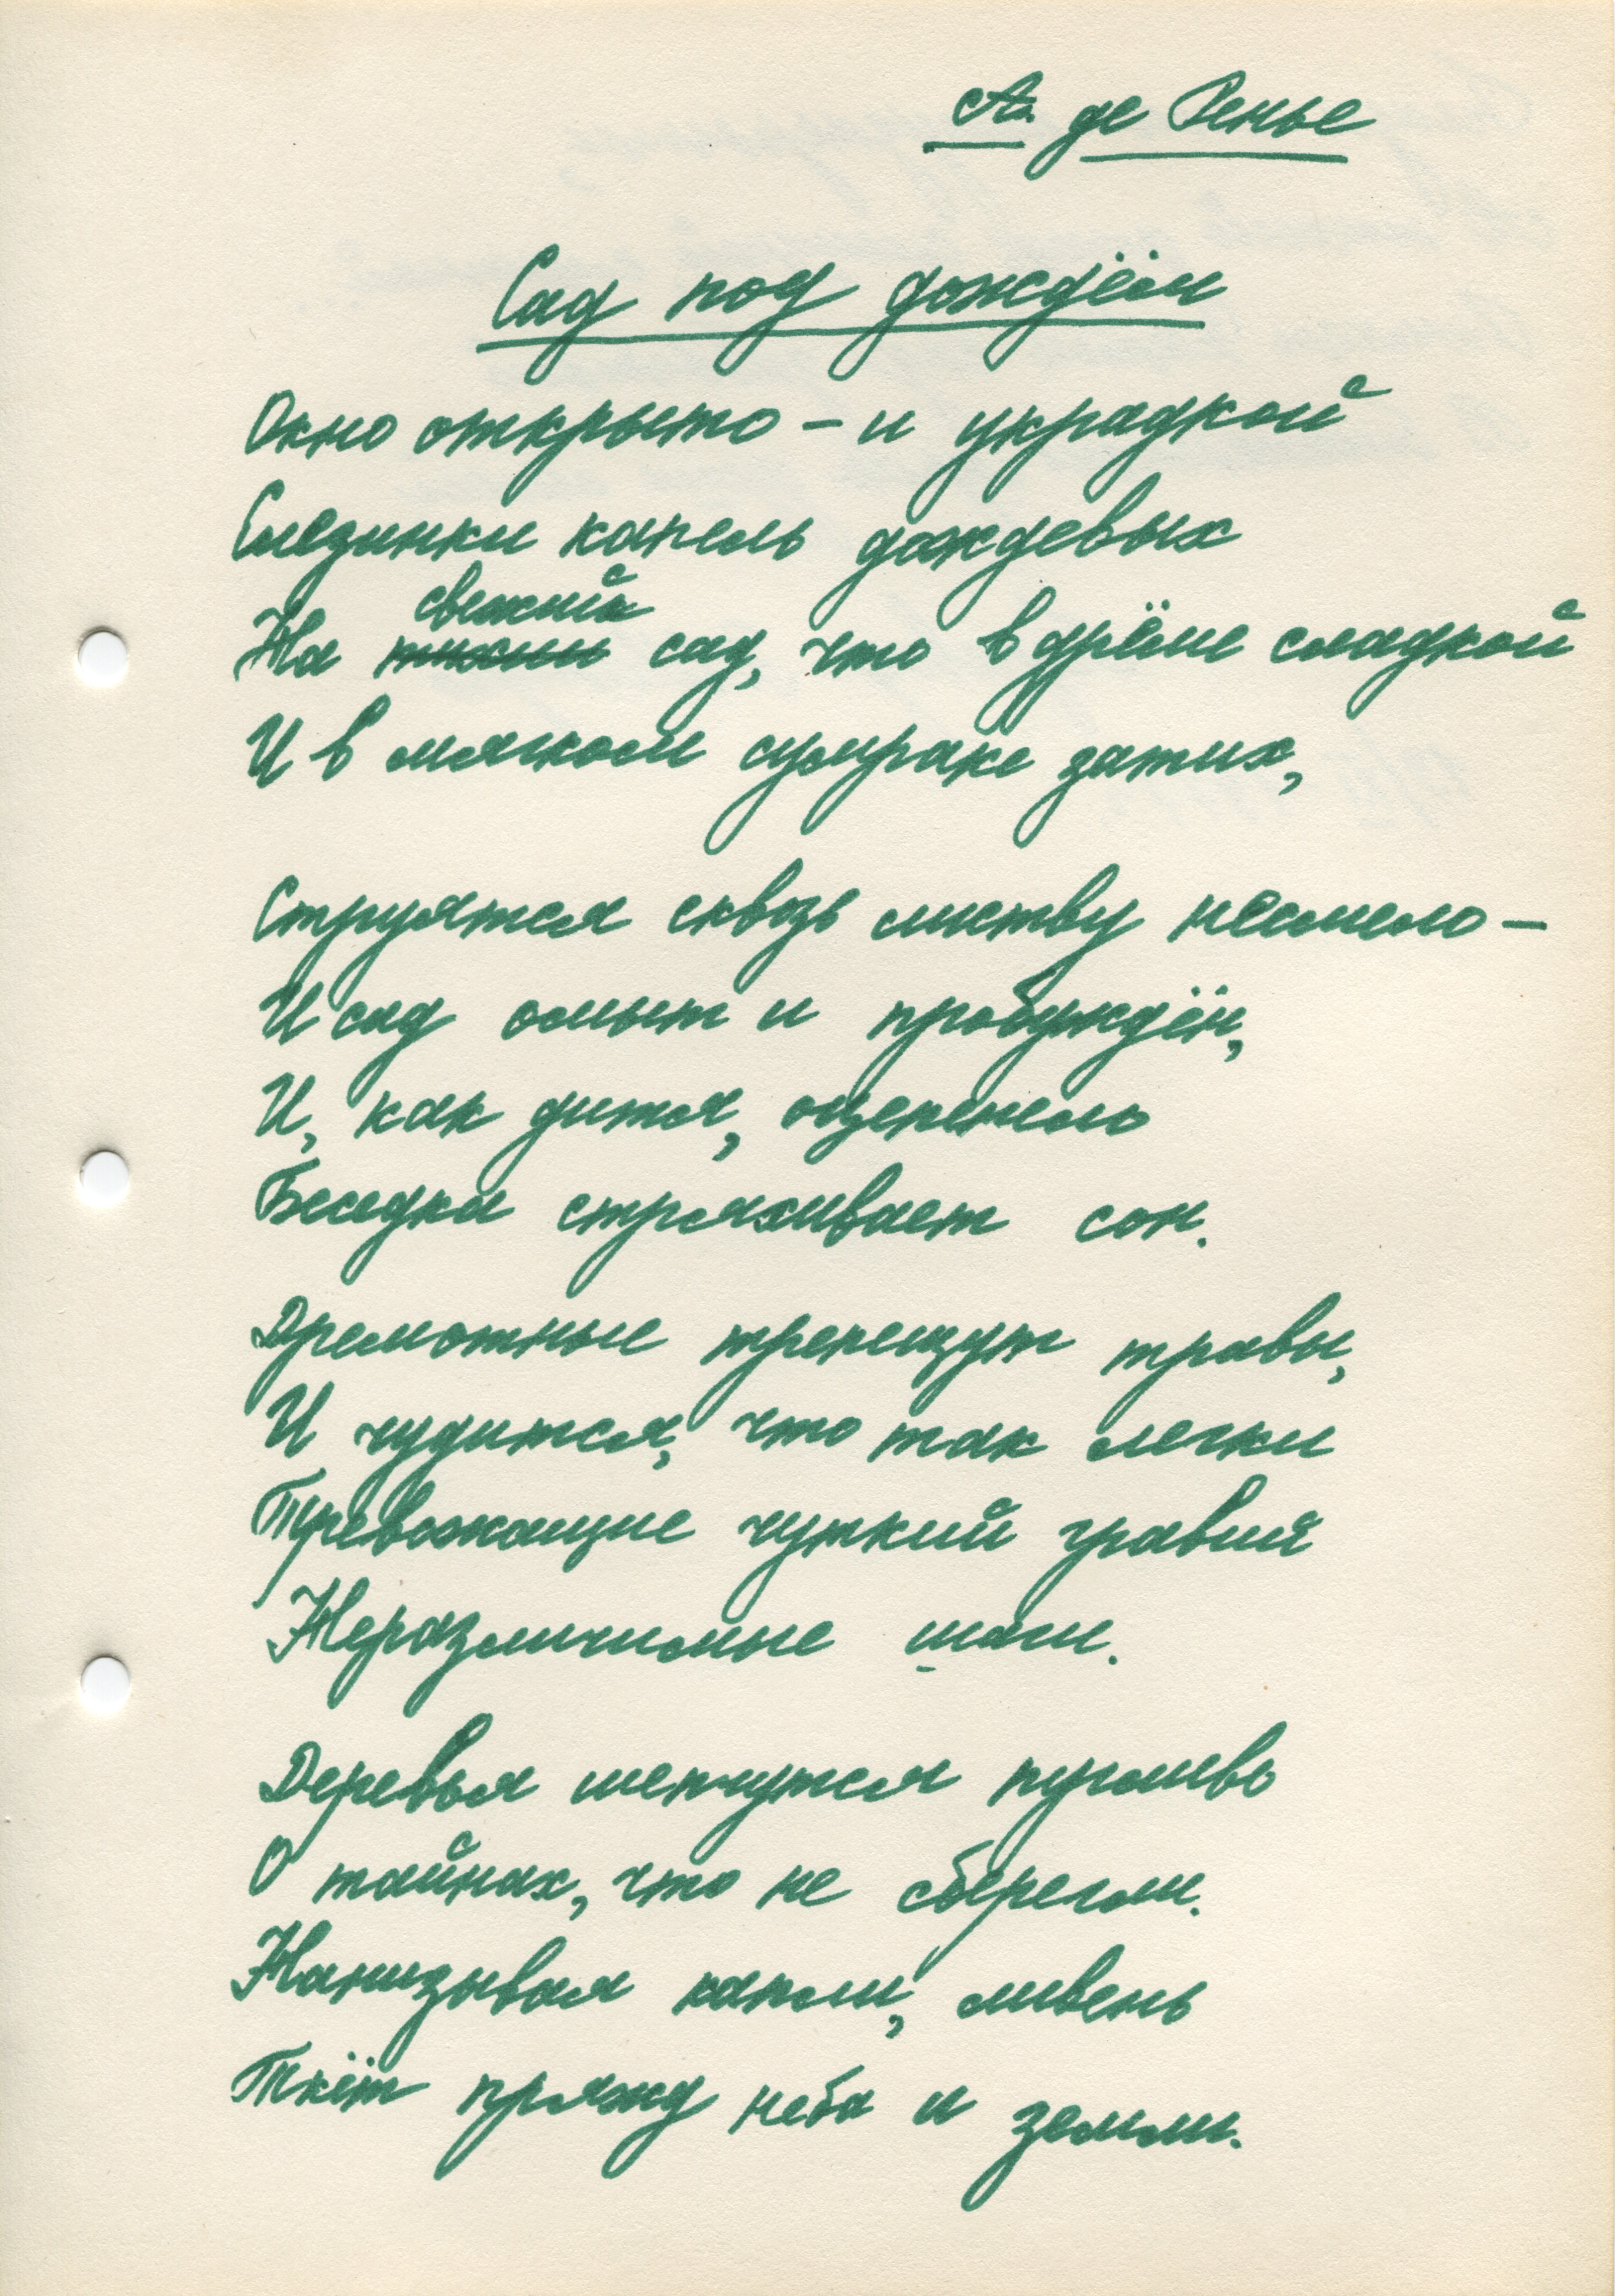 А. де Ренье
Сад под дождём
Окно открыто – и украдкой
Слезинки капель дождевых
свежий
На тихий сад, что в дрёме сладкой
И в мягком сумраке затих,
Струятся сквозь листву несмело –
И сад омыт и пробуждён,
И, как дитя, оцепенело
Беседка стряхивает сон.
Дремотные трепещут травы,
И чудится, что так легки
Тревожащие чуткий гравий
Неразличимые шаги.
Деревья шепчутся пугливо
О тайнах, что не сберегли.
Нанизывая капли, ливень
Ткёт пряжу неба и земли.